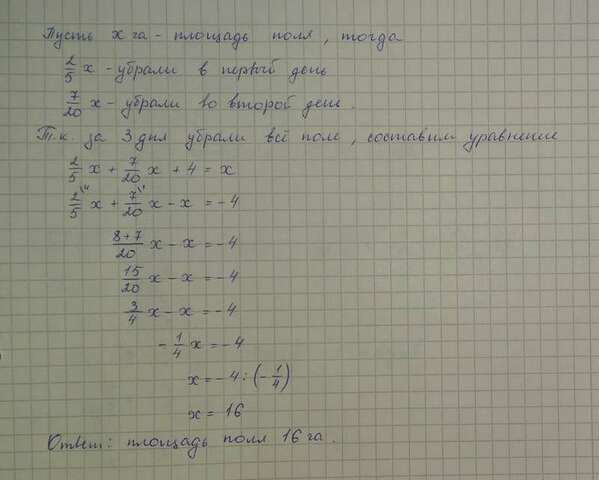 Пусть х га - площадь поля, тогда
2/5 х - убрали в первый день
7/20 х - убрали во второй день.
Т.к. за 3 дня убрали всё поле, составим уравнение
2/5 х + 7/20 х + 4 = х
2/5 х + 7/20 х - х = -4
8+7/20 х - х = -4
15/20 х - х = -4
3/4 х - х = -4
- 1/4 х = -4
х = -4 : (- 1/4)
х = 16
Ответ: площадь поля 16 га.